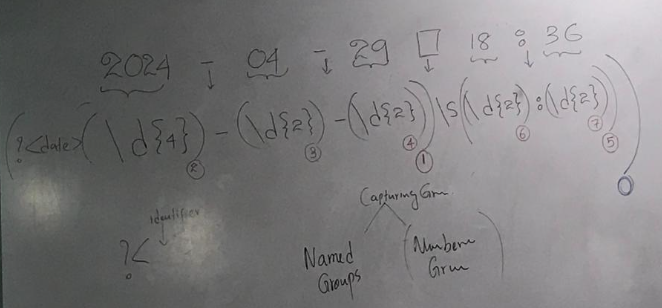 2024 - 04 - 29 □ 18 : 36
(?<date>(\d{4})-(\d{2})-(\d{2}))\S(\d{2}):(\d{2}))
② ③ ④ ① ⑥ ⑦ ⑤ 0
identifier
?<
Capturing
Named
Groups